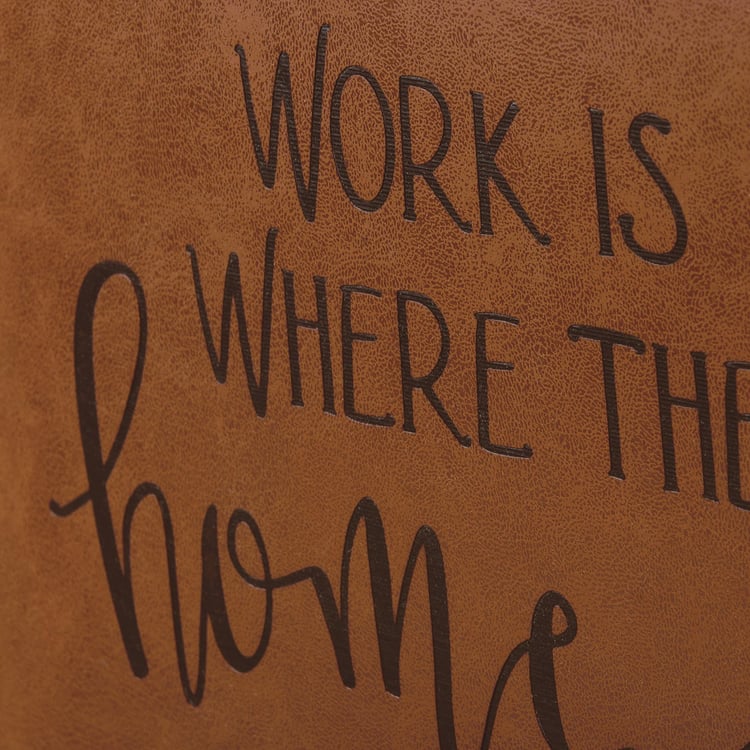 WORK IS
WHERE THE
home